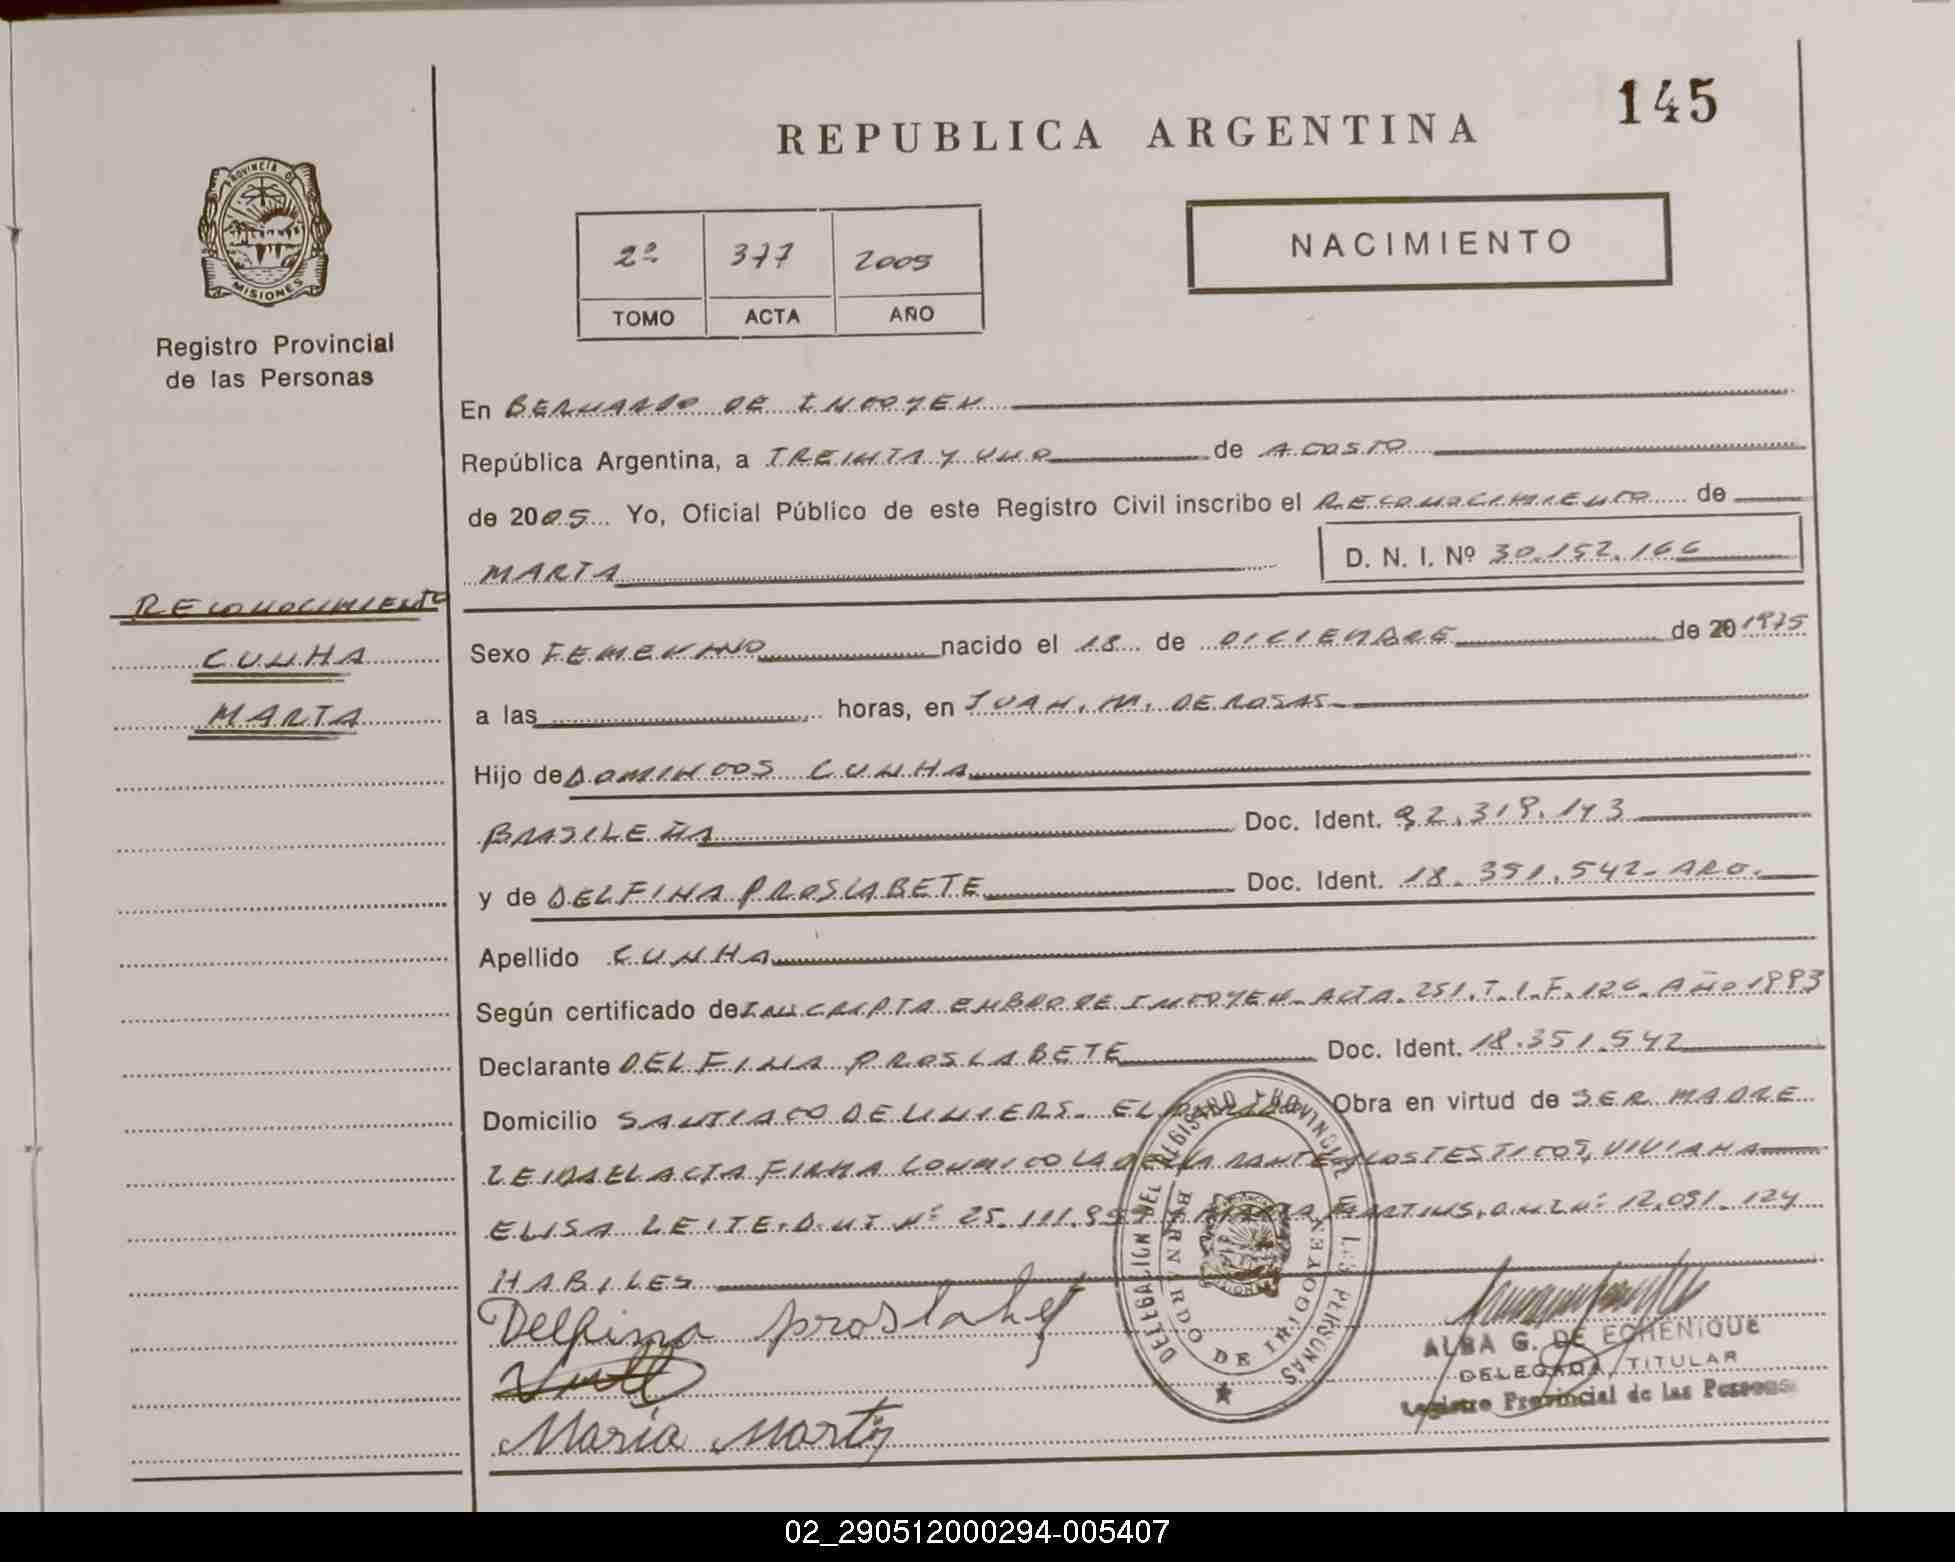 145
REPUBLICA ARGENTINA
PROVINCIA DE
MISIONES
Registro Provincial
de las Personas
2º 377 2005
TOMO ACTA AÑO
NACIMIENTO
En BERNARDO DE IRIGOYEN
República Argentina, a TREINTA Y UNO de AGOSTO
de 2005 Yo, Oficial Público de este Registro Civil inscribo el RECONOCIMIENTO de
MARTA D. N. I. Nº 30.152.166
RECONOCIMIENTO
CUNHA
MARTA
Sexo FEMENINO nacido el 18 de DICIEMBRE de 20 1975
a las horas, en JUAN. M. DE ROSAS
Hijo de DOMINGOS CUNHA
BRASILEÑA Doc. Ident. 92.319.143
y de DELFINA PROSLABETE Doc. Ident. 18.351.542- ARG.
Apellido CUNHA
Según certificado de INSCRIPTA EN BDO DE IRIGOYEN- ACTA. 251. T.1.F.126. AÑO 1993
Declarante DELFINA PROSLABETE Doc. Ident. 18.351.542
Domicilio SANTIAGO DE LINIERS- EL Obra en virtud de SER MADRE
LEIDA EL ACTA FIRMA CONMIGO LA DECLARANTE Y LOS TESTIGOS, VIVIANA
ELISA LEITE. D.N.I Nº 25.111. MARTINS, D.N.I Nº 12.091.124
HABILES
Delfina proslabet
Maria Martis
DELEGACION DEL REGISTRO PROVINCIAL DE LAS PERSONAS
BERNARDO DE IRIGOYEN
ALBA G. DE ECHENIQUE
DELEGADA TITULAR
Registro Provincial de las Personas
02_290512000294-005407